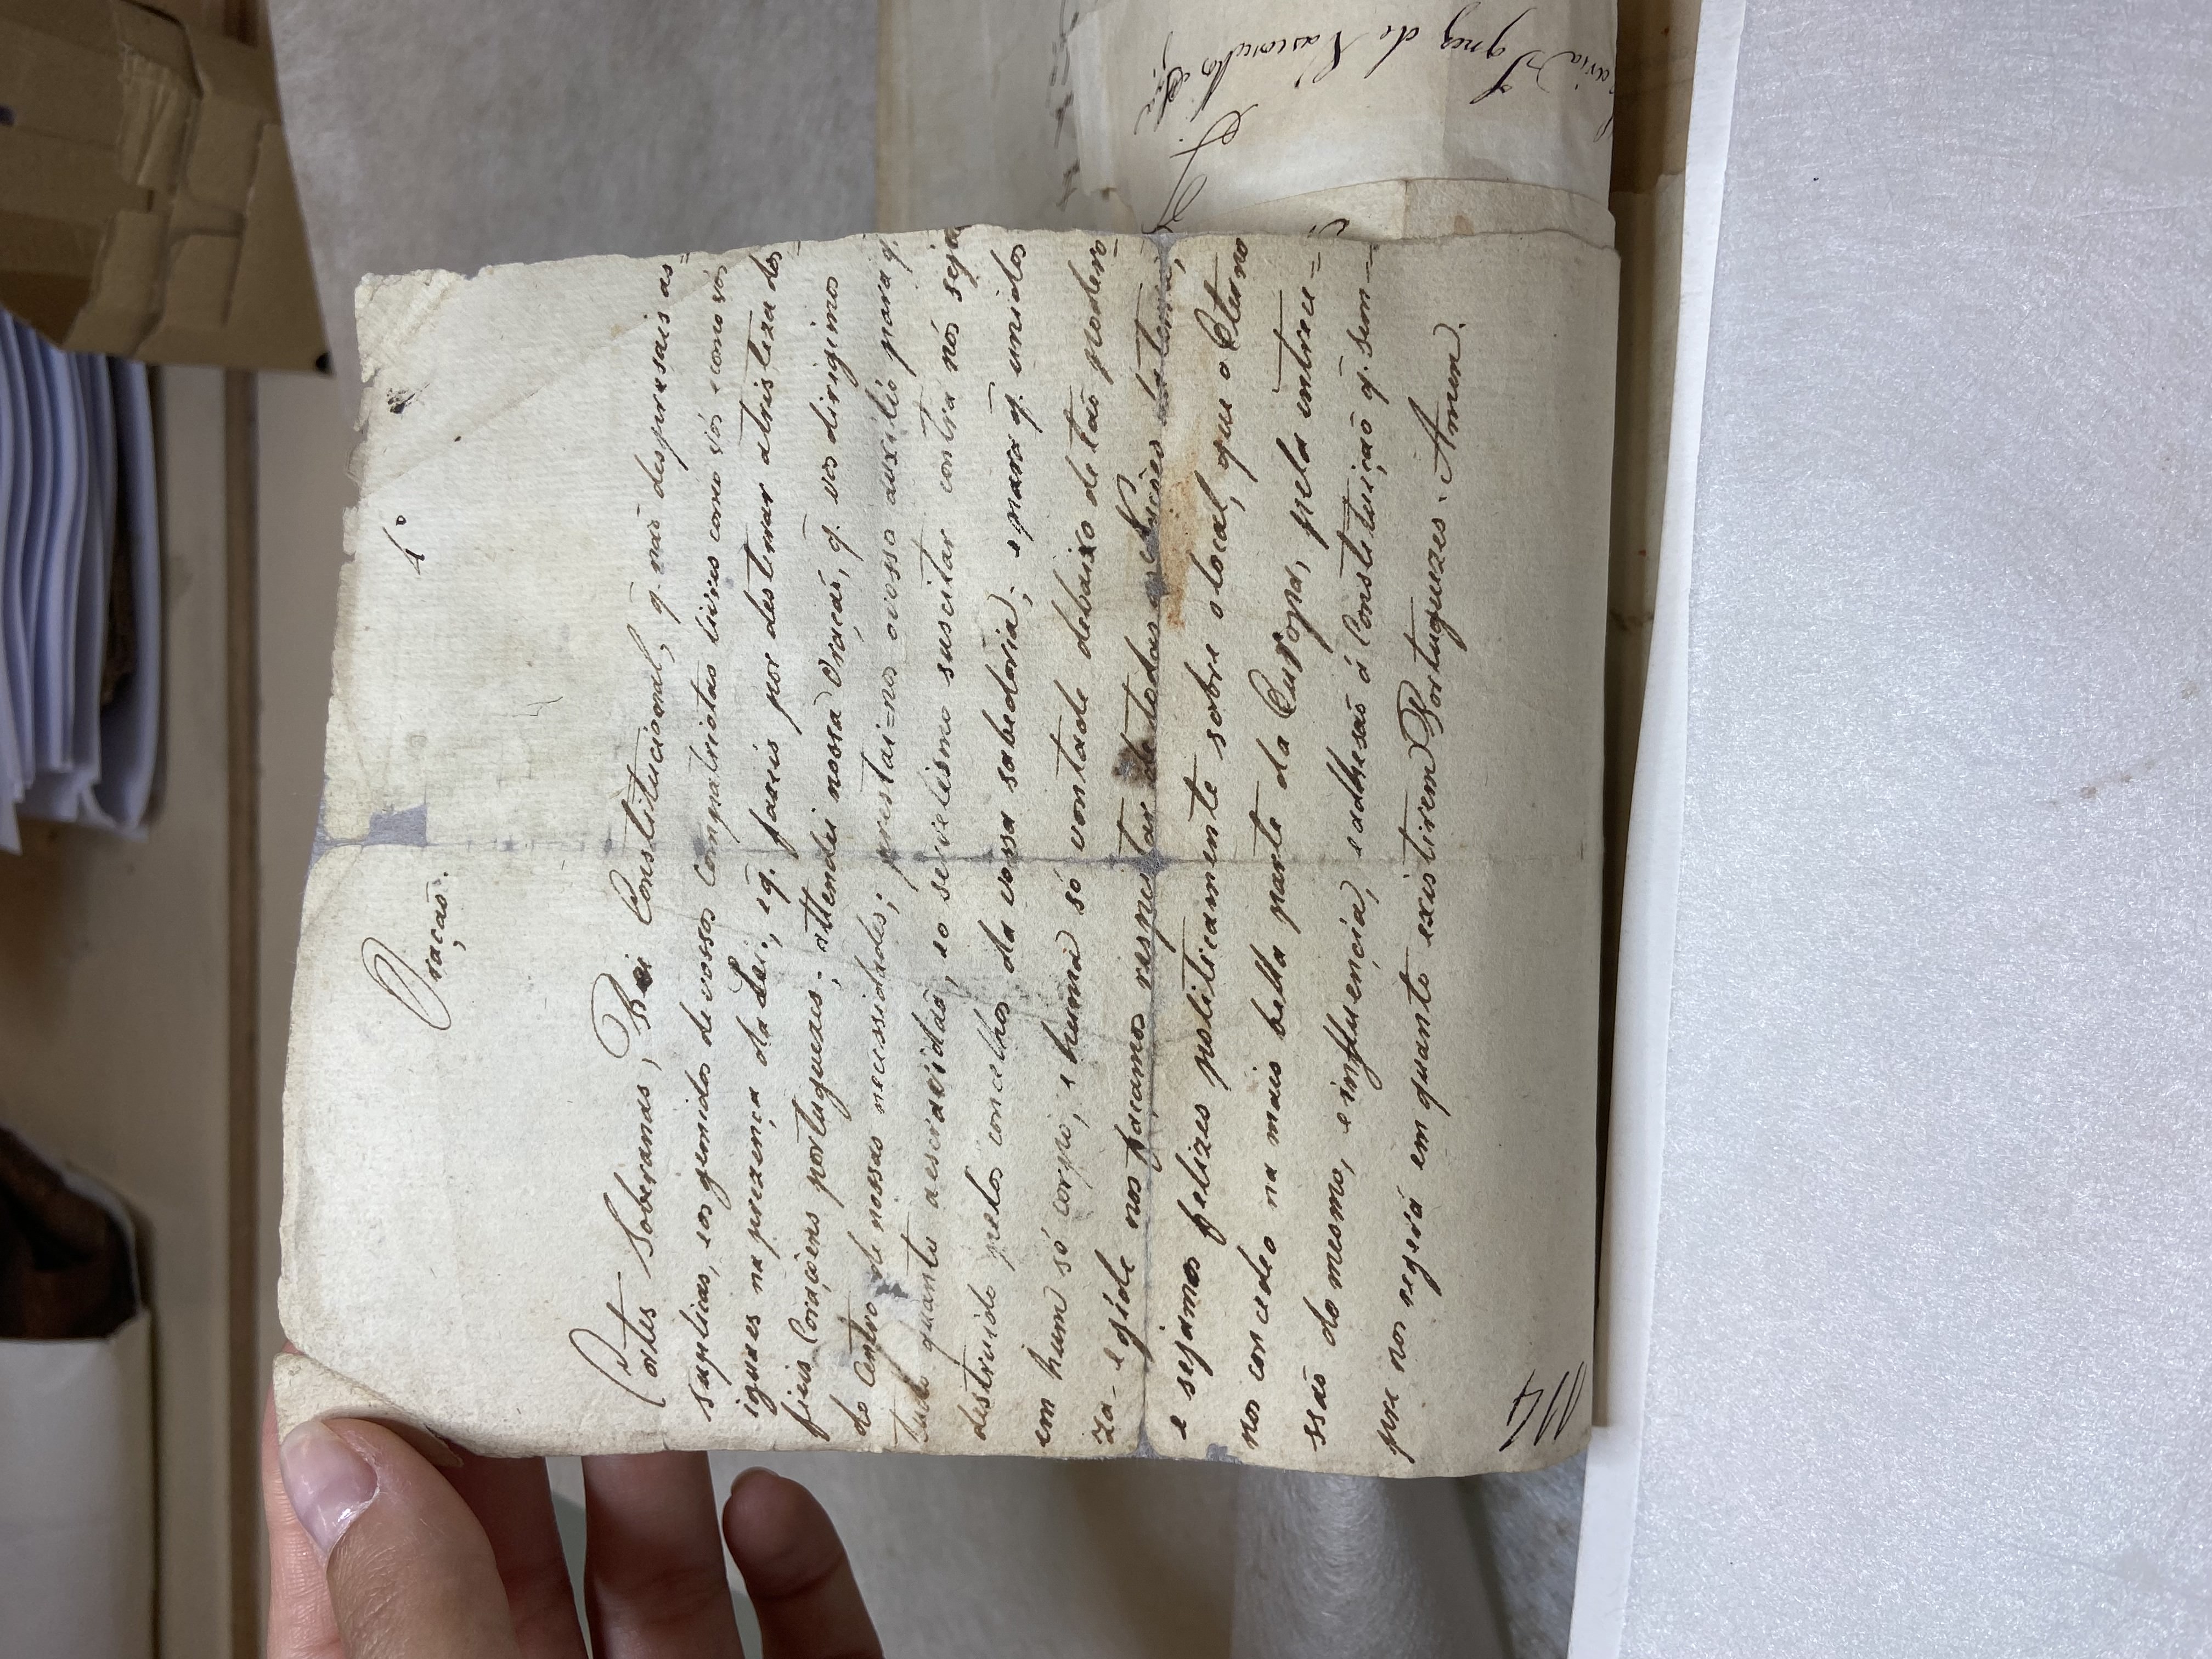 Oraçaõ.
4º
Cortes Soberanas, Rei Constitucional, q̃. naõ despresais as=
suplicas, eos gemidos de vossos Compatriotas livres como vós e como vós
iguaes na prezença da Lei., eq̃. fazeis por desterrar atristeza dos=
fieis Coraçoens portuguezes; attendei nossa Oraçaõ, q̃. vos dirigimos
do Centro de nossas necessidades; prestai=nos ovosso auxilio para q̃.
tudo quanto aescravidaõ, eo servelismo suscitar contra nós seja
destruido pelos concelhos da vossa sabedoria; e para q̃. unidos
em hum só corpo, e huma só vontade debaixo de taõ podero=
za- egide nos façamos respeitar de todas as Nacões da terra,
e sejamos felizes politicamente sobre olocal, que o Eterno
nos concedeo na mais bella parte da Europa, pela intrece=
ssaõ do mesmo, e influencia, e adhesaõ á Constituiçaõ q̃. sem=
pre nos regerá em quanto existirem Portuguezes. Amen.
114
Ignez de Vasconcellos